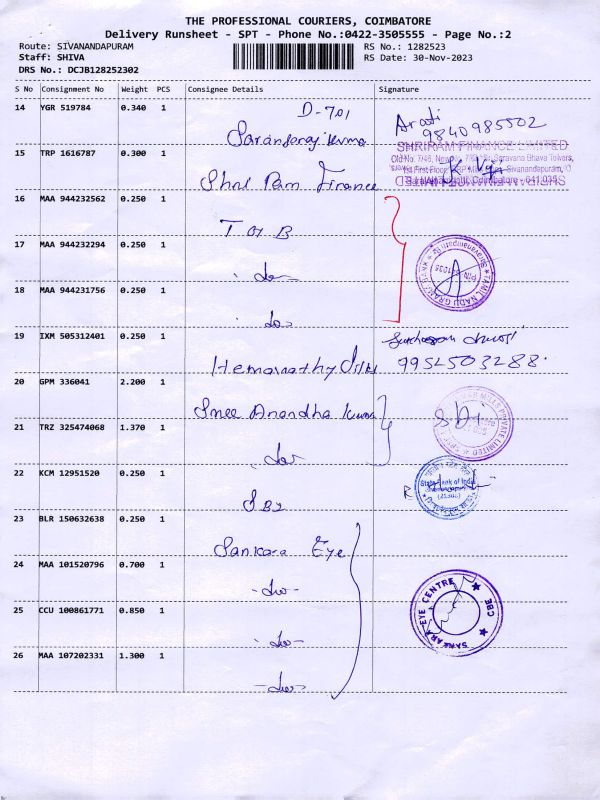 THE PROFESSIONAL COURIERS, COIMBATORE
Delivery Runsheet - SPT - Phone No.:0422-3505555 - Page No.:2
Route: SIVANANDAPURAM
RS No.: 1282523
Staff: SHIVA
RS Date: 30-Nov-2023
DRS No.: DCJB128252302
S No Consignment No Weight PCS Consignee Details Signature
14 YGR 519784 0.340 1 D-701
Arati
9840985502
15 TRP 1616787 0.300 1
SHRIRAM FINANCE LIMITED
Shri Ram Finance
16 MAA 944232562 0.250 1
17 MAA 944232294 0.250 1
- do -
TAMIL NADU GRAMA BANK
18 MAA 944231756 0.250 1
- do -
19 IXM 505312401 0.250 1
9952503288
20 GPM 336041 2.200 1
21 TRZ 325474068 1.370 1
MILLS PRIVATE LIMITED
- do -
22 KCM 12951520 0.250 1
State Bank of India
SBI
23 BLR 150632638 0.250 1
Sankara Eye
24 MAA 101520796 0.700 1
- do -
SANKARA EYE CENTRE CBE
25 CCU 100861771 0.850 1
- do -
26 MAA 107202331 1.300 1
- do -